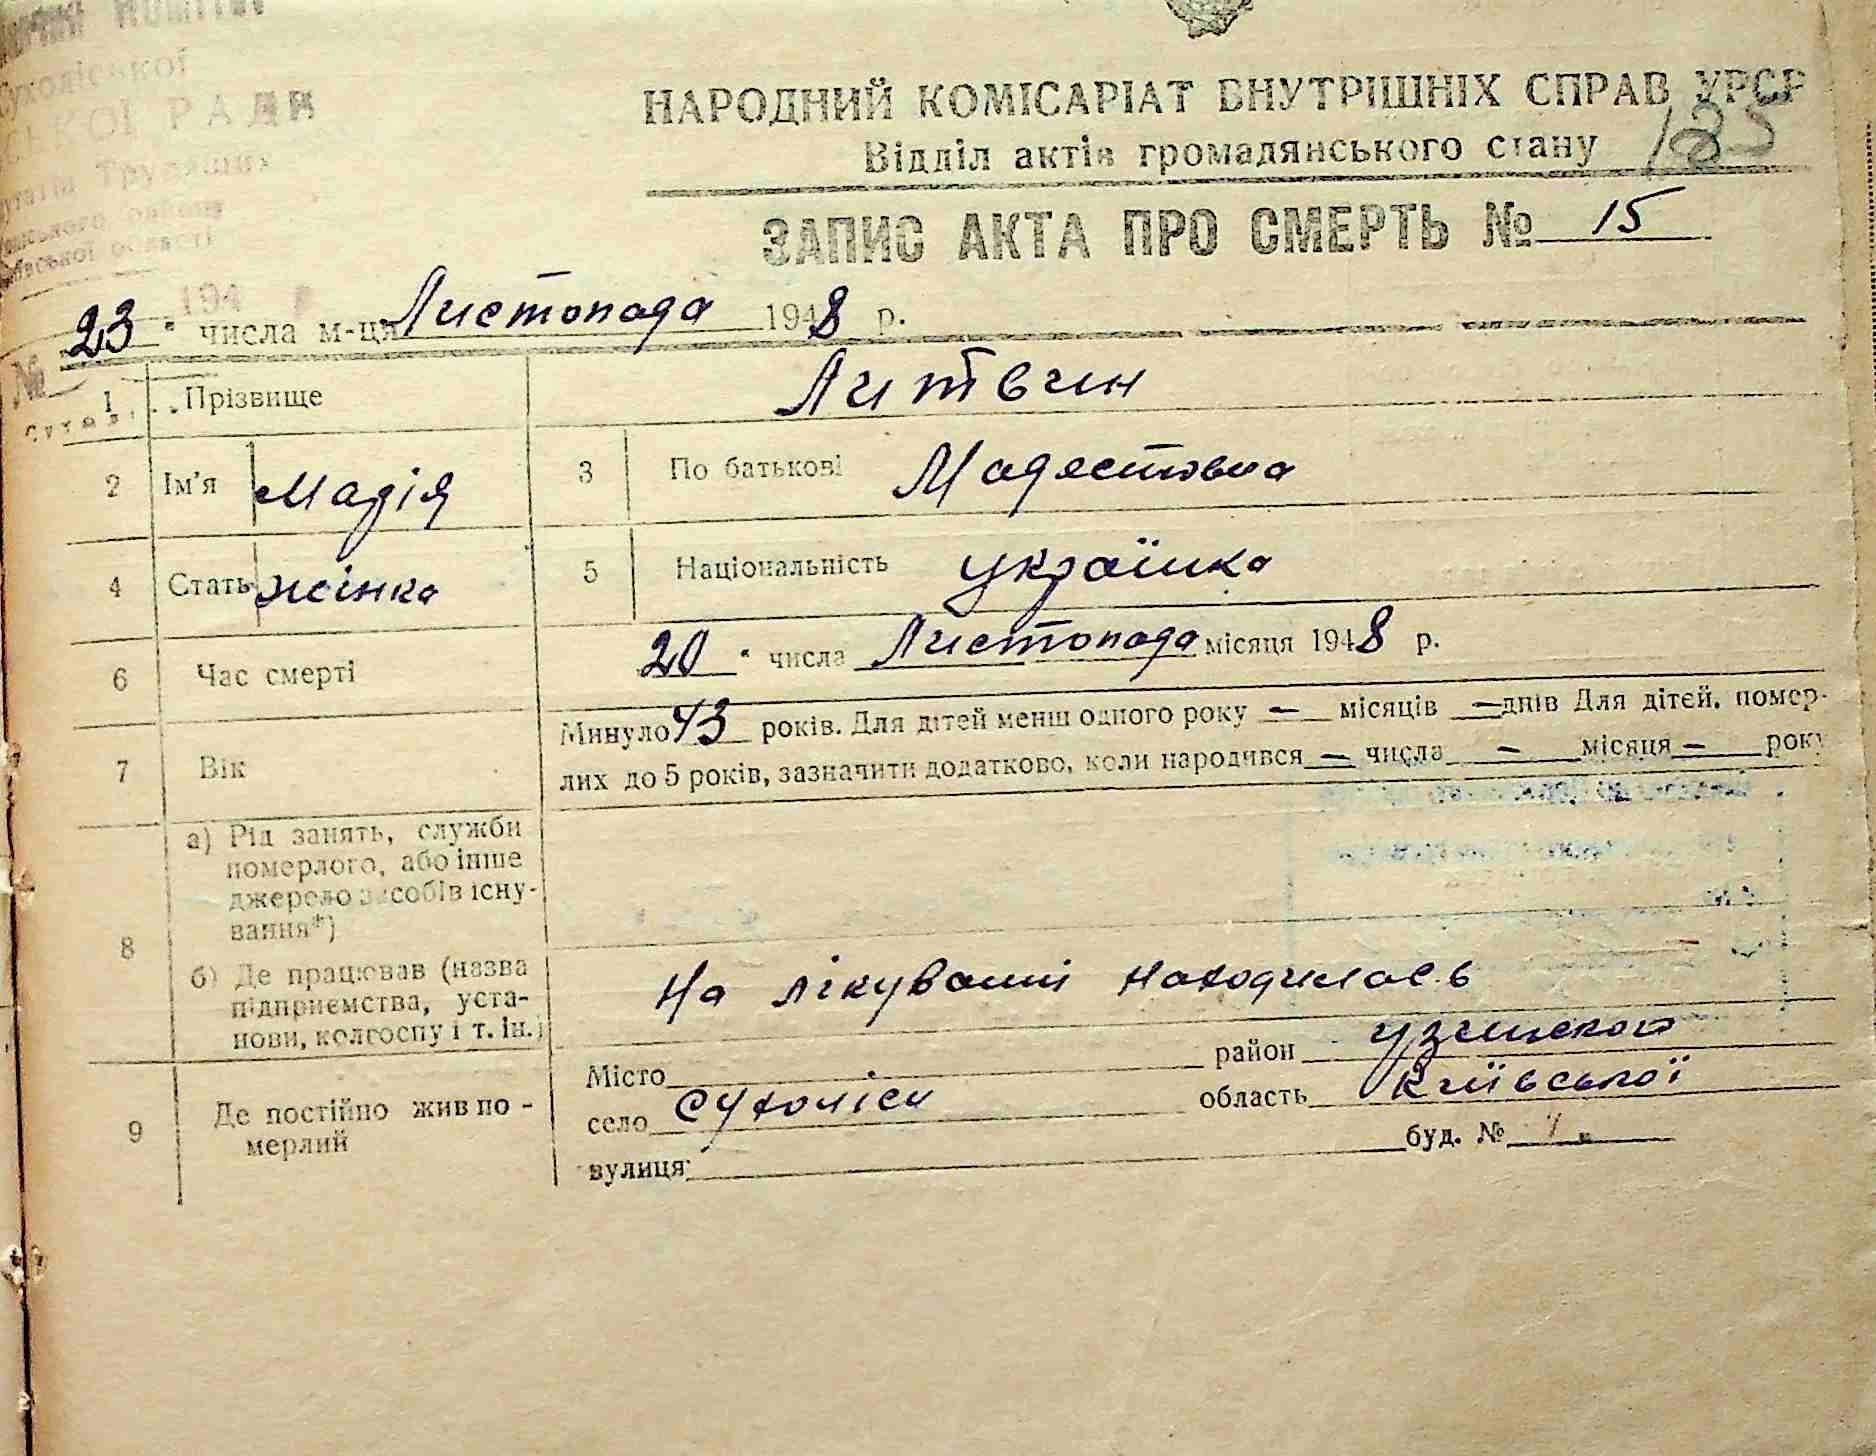 РАДИ
НАРОДНИЙ КОМІСАРІАТ ВНУТРІШНІХ СПРАВ УРСР
185
Відділ актів громадянського стану
ЗАПИС АКТА ПРО СМЕРТЬ № 15
23 " числа м-ця Листопада 1948 р.
1 Прізвище Литвин
2 Ім'я Марія 3 По батькові Модестовна
4 Стать жінка 5 Національність українка
6 Час смерті 20 " числа Листопада місяця 1948 р.
7 Вік Минуло 43 років. Для дітей менш одного року — місяців — днів Для дітей, помер-
лих до 5 років, зазначити додатково, коли народився — числа — місяця — року
8 а) Рід занять, служби
померлого, або інше
джерело засобів існу-
вання*)
б) Де працював (назва
підприємства, уста-
нови, колгоспу і т. ін.)
На лікуванні находилась
9 Де постійно жив по-
мерлий
Місто район Узинского
село Сухоліси область Київської
вулиця буд. №